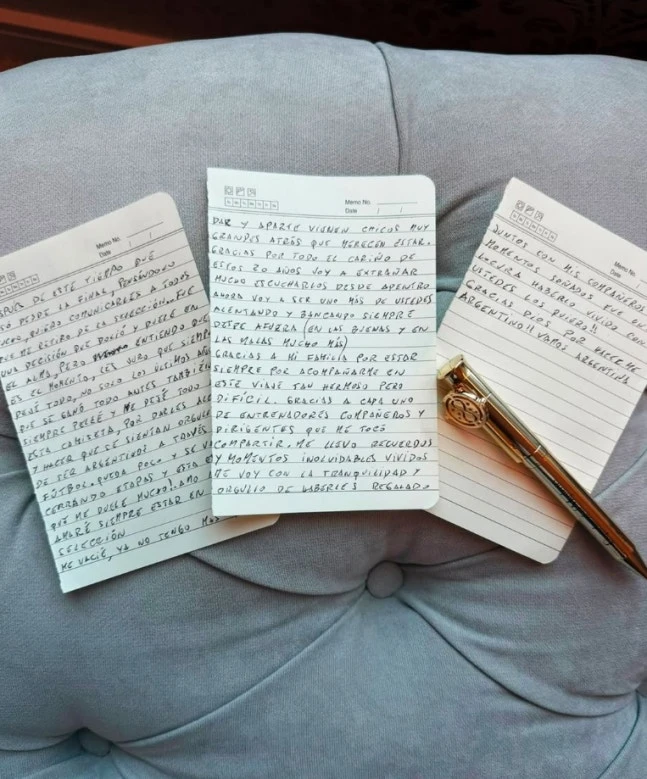 Memo No.
Date / /
DE ESTE TIEMPO QUE
DESDE LA FINAL PENSÁNDOLO
QUIERO COMUNICARLES A TODOS
QUE ME RETIRO DE LA SELECCIÓN. FUE
UNA DECISIÓN QUE DOLIÓ Y DUELE EN
EL ALMA, PERO ENTIENDO QUE
ES EL MOMENTO, LES JURO QUE SIEMPRE
DEJÉ TODO, NO SOLO LOS ÚLTIMOS AÑOS
QUE SE GANÓ TODO ANTES TAMBIÉN
SIEMPRE PELEÉ Y ME DEJÉ TODO
ESTA CAMISETA, POR DARLES
Y HACER QUE SE SIENTAN
DE SER ARGENTINOS A TRAVÉS
FÚTBOL. QUEDA POCO Y SE
CERRANDO ETAPAS Y ESTA
QUE ME DUELE MUCHO! AMO
AMARÉ SIEMPRE ESTAR EN
SELECCIÓN
ME VACIÉ, YA NO TENGO MÁS
Memo No.
Date / /
DAR Y APARTE VIENEN CHICOS MUY
GRANDES ATRÁS QUE MERECEN ESTAR.
GRACIAS POR TODO EL CARIÑO DE
ESTOS 20 AÑOS VOY A EXTRAÑAR
MUCHO ESCUCHARLOS DESDE ADENTRO
AHORA VOY A SER UNO MÁS DE USTEDES
ALENTANDO Y BANCANDO SIEMPRE
DESDE AFUERA (EN LAS BUENAS Y EN
LAS MALAS MUCHO MÁS)
GRACIAS A MI FAMILIA POR ESTAR
SIEMPRE POR ACOMPAÑARME EN
ESTE VIAJE TAN HERMOSO PERO
DIFÍCIL. GRACIAS A CADA UNO
DE ENTRENADORES COMPAÑEROS Y
DIRIGENTES QUE ME TOCÓ
COMPARTIR. ME LLEVO RECUERDOS
Y MOMENTOS INOLVIDABLES VIVIDOS
ME VOY CON LA TRANQUILIDAD Y
ORGULLO DE HABERLES REGALADO
Memo No.
Date /
JUNTOS CON MIS COMPAÑEROS
MOMENTOS SOÑADOS FUE UNA
LOCURA HABERLO VIVIDO CON
USTEDES LOS QUIERO!!
GRACIAS DIOS POR HACERME
ARGENTINO!! VAMOS ARGENTINA